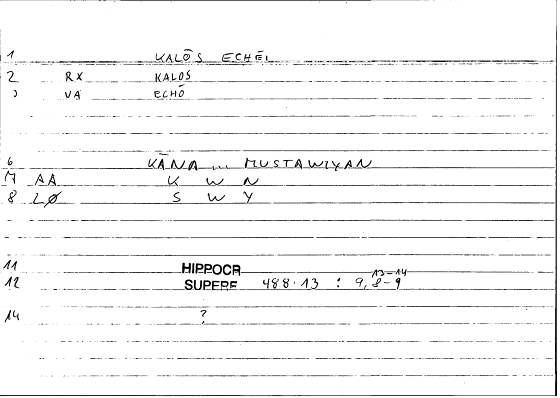 1 KALŌS ECHEI
2 RX KALOS
VA ECHŌ
6 KĀNA ... MUSTAWIYAN
7 AA K W N
8 LØ S W Y
11 HIPPOCR
12 SUPERF 488.13 : 9, 8-9 13-14
14 ?